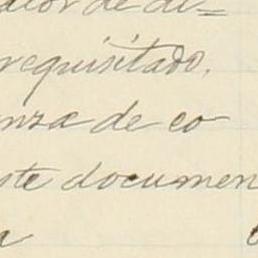 alor de di=
requisitado.
nza de co
ste documen
a